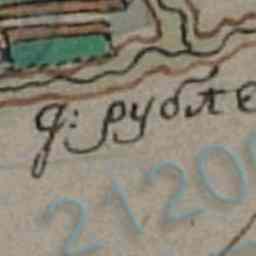 д: рубле
2120